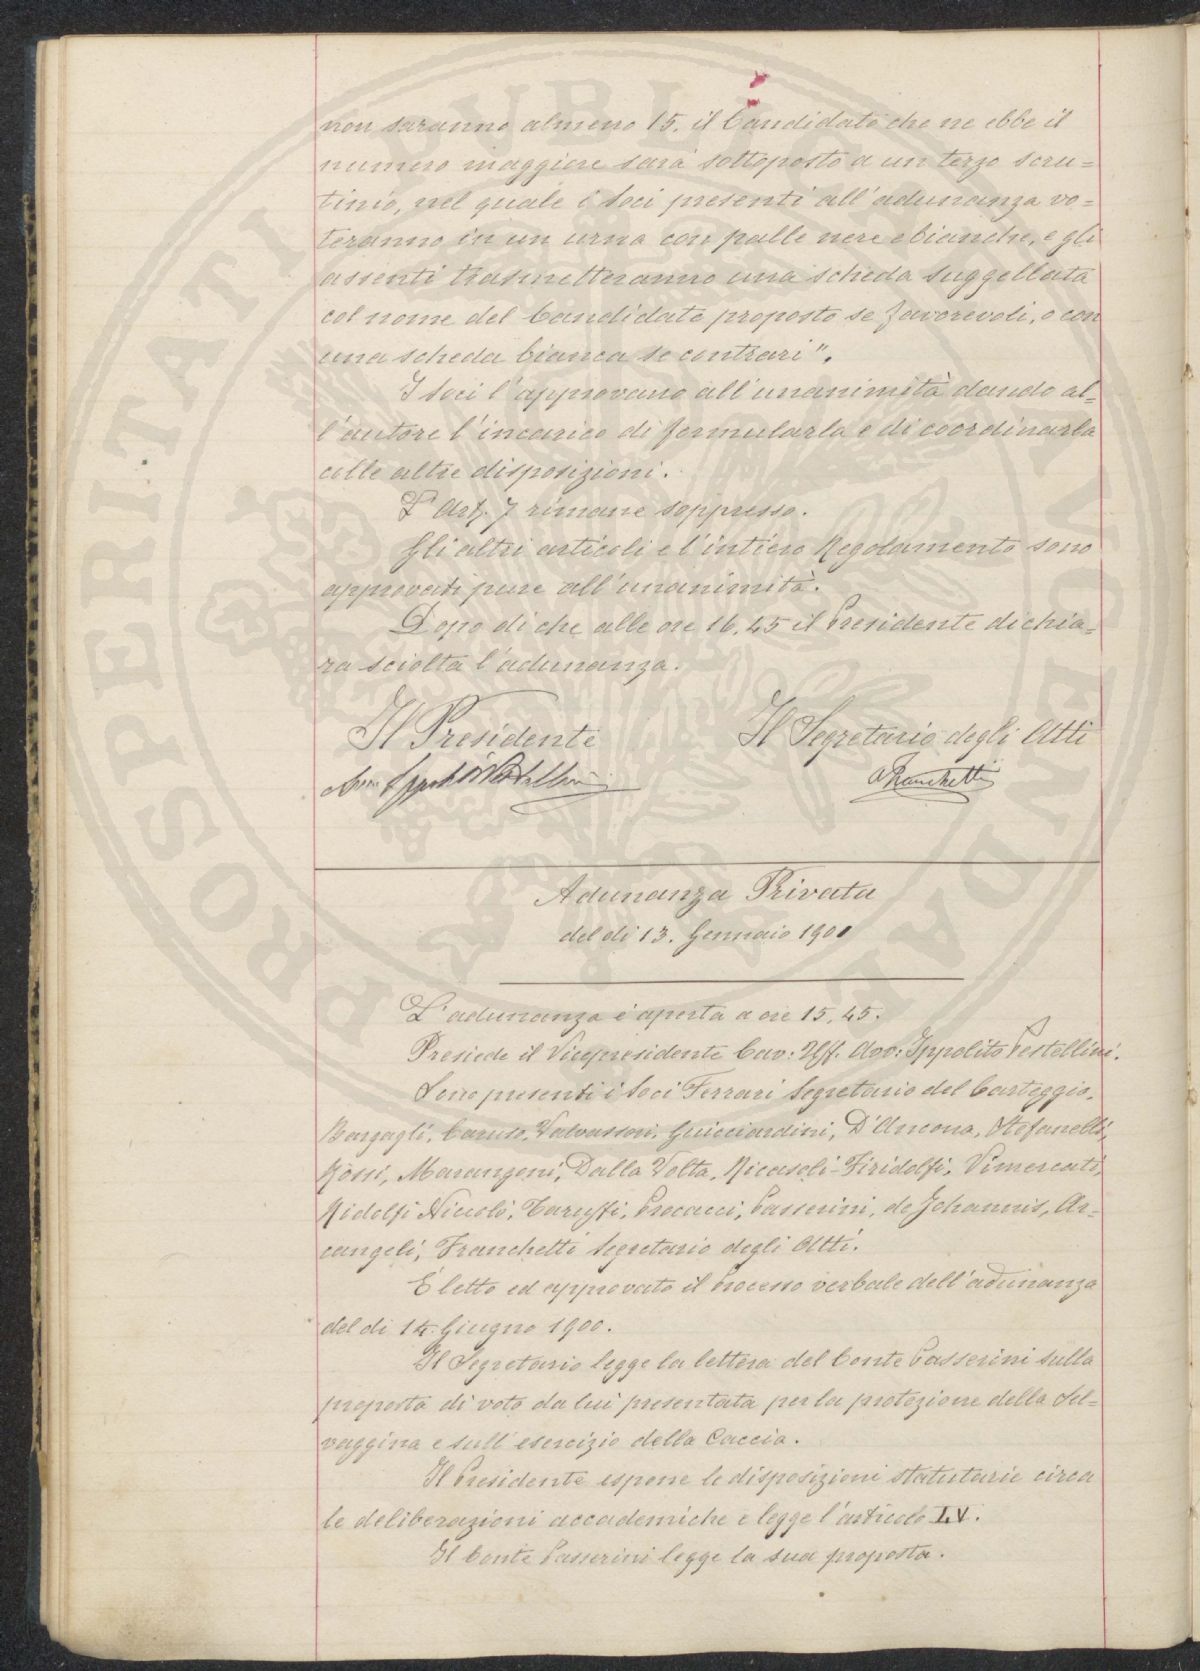 non saranno almeno 15, il Candidato che ne ebbe il
numero maggiore sarà sottoposto a un terzo scru=
tinio, nel quale i Soci presenti all'adunanza vo=
teranno in un urna con palle nere e bianche, e gli
assenti trasmetteranno una scheda suggellata
col nome del Candidato proposto se favorevoli, o con
una scheda bianca se contrari".
I soci l'approvano all'unanimità dando al=
l'autore l'incarico di formularla e di coordinarla
colle altre disposizioni.
L'Art. 7 rimane soppresso.
Gli altri articoli e l'intiero Regolamento sono
approvati pure all'unanimità.
Dopo di che alle ore 16,45 il Presidente dichia=
ra sciolta l'adunanza.
Il Presidente
Il Segretario degli Atti
Franchetti
Adunanza Privata
del dì 13. Gennaio 1901
L'adunanza è aperta a ore 15,45.
Presiede il Vicepresidente Cav: Uff. Avv: Ippolito Pestellini.
Sono presenti i Soci Ferrari Segretario del Carteggio,
Bargagli, Caruso, Valvassori, Guicciardini, D'Ancona, Stefanelli,
Rossi, Marangoni, Dalla Volta, Ricasoli-Firidolfi, Vimercati,
Ridolfi Niccolò, Taruffi, Procacci, Passerini, de Johannis, Ar=
cangeli, Franchetti Segretario degli Atti.
È letto ed approvato il Processo verbale dell'adunanza
del dì 14 Giugno 1900.
Il Segretario legge la lettera del Conte Passerini sulla
proposta di voto da lui presentata per la protezione della Sel=
vaggina e sull'esercizio della Caccia.
Il Presidente espone le disposizioni statutarie circa
le deliberazioni accademiche e legge l'articolo LV.
Il Conte Passerini legge la sua proposta.
PROSPERITATI PUBLICAE AUGENDAE